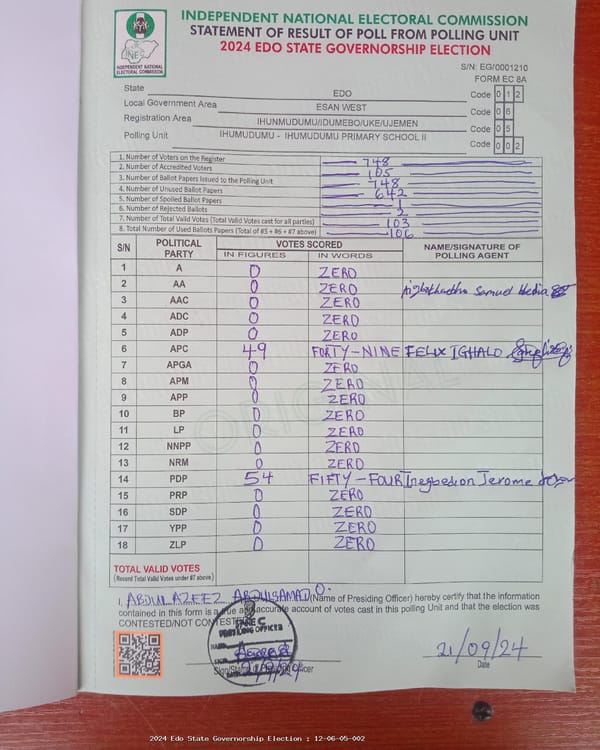 INDEPENDENT NATIONAL ELECTORAL COMMISSION
STATEMENT OF RESULT OF POLL FROM POLLING UNIT
2024 EDO STATE GOVERNORSHIP ELECTION
INEC
INDEPENDENT NATIONAL
ELECTORAL COMMISSION
S/N: EG/0001210
FORM EC 8A
State EDO Code 0 1 2
Local Government Area ESAN WEST Code 0 6
Registration Area IHUNMUDUMU/IDUMEBO/UKE/UJEMEN Code 0 5
Polling Unit IHUMUDUMU - IHUMUDUMU PRIMARY SCHOOL II Code 0 0 2
1. Number of Voters on the Register 748
2. Number of Accredited Voters 105
3. Number of Ballot Papers Issued to the Polling Unit 748
4. Number of Unused Ballot Papers 642
5. Number of Spoiled Ballot Papers 1
6. Number of Rejected Ballots 2
7. Number of Total Valid Votes (Total Valid Votes cast for all parties) 103
8. Total Number of Used Ballots Papers (Total of #5 + #6 + #7 above) 106
S/N POLITICAL PARTY VOTES SCORED NAME/SIGNATURE OF POLLING AGENT
IN FIGURES IN WORDS
1 A 0 ZERO
2 AA 0 ZERO Samuel
3 AAC 0 ZERO
4 ADC 0 ZERO
5 ADP 0 ZERO
6 APC 49 FORTY-NINE FELIX IGHALO
7 APGA 0 ZERO
8 APM 0 ZERO
9 APP 0 ZERO
10 BP 0 ZERO
11 LP 0 ZERO
12 NNPP 0 ZERO
13 NRM 0 ZERO
14 PDP 54 FIFTY-FOUR Inegbedion Jerome
15 PRP 0 ZERO
16 SDP 0 ZERO
17 YPP 0 ZERO
18 ZLP 0 ZERO
ORIGINAL
TOTAL VALID VOTES
(Record Total Valid Votes under #7 above)
I, ABDULAZEEZ ABDULSAMAD O. (Name of Presiding Officer) hereby certify that the information
contained in this form is a true and accurate account of votes cast in this polling Unit and that the election was
CONTESTED/NOT CONTESTED
INEC
PRESIDING OFFICER
Sign/Stamp of Presiding Officer
21/09/24
Date
2024 Edo State Governorship Election : 12-06-05-002